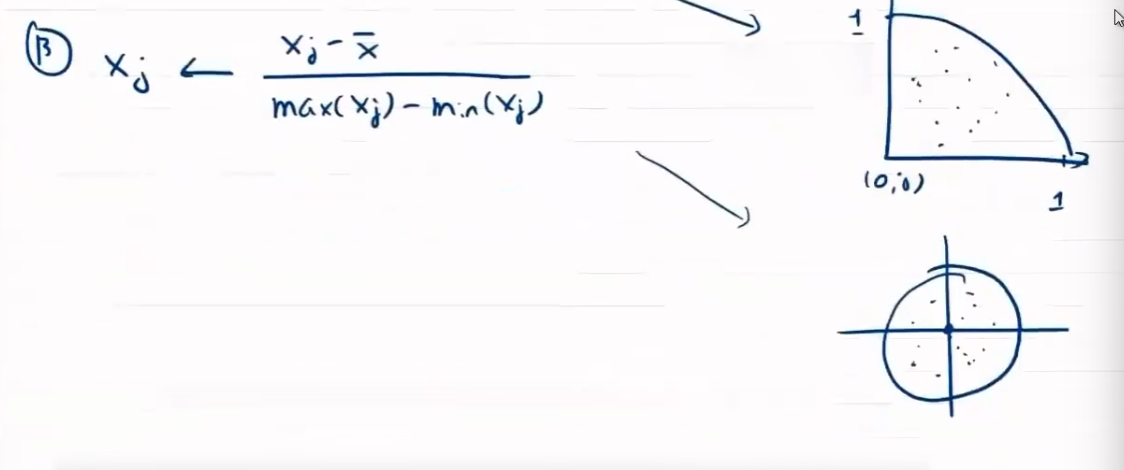 B x_j ← (x_j - x̄) / (max(x_j) - min(x_j))
1
(0,0)
1